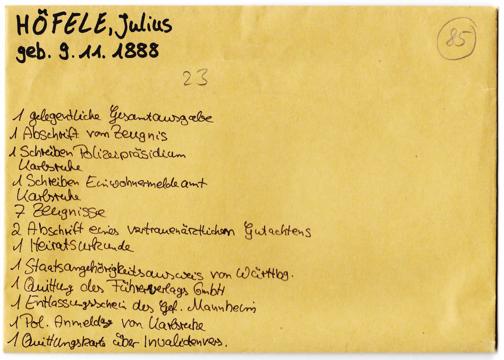 HÖFELE, Julius
geb. 9. 11. 1888
85
23
1 gelegentliche Gesamtausgabe
1 Abschrift vom Zeugnis
1 Schreiben Polizeipräsidium
Karlsruhe
1 Schreiben Einwohnermeldeamt
Karlsruhe
7 Zeugnisse
2 Abschrift eines vertrauenärztlichen Gutachtens
1 Heiratsurkunde
1 Staatsangehörigkeitsausweis von Württbg.
1 Quittung des Führerverlags GmbH
1 Entlassungsschein des Gef. Mannheim
1 Pol. Anmeldg von Karlsruhe
1 Quittungskarte über Invalidenvers.